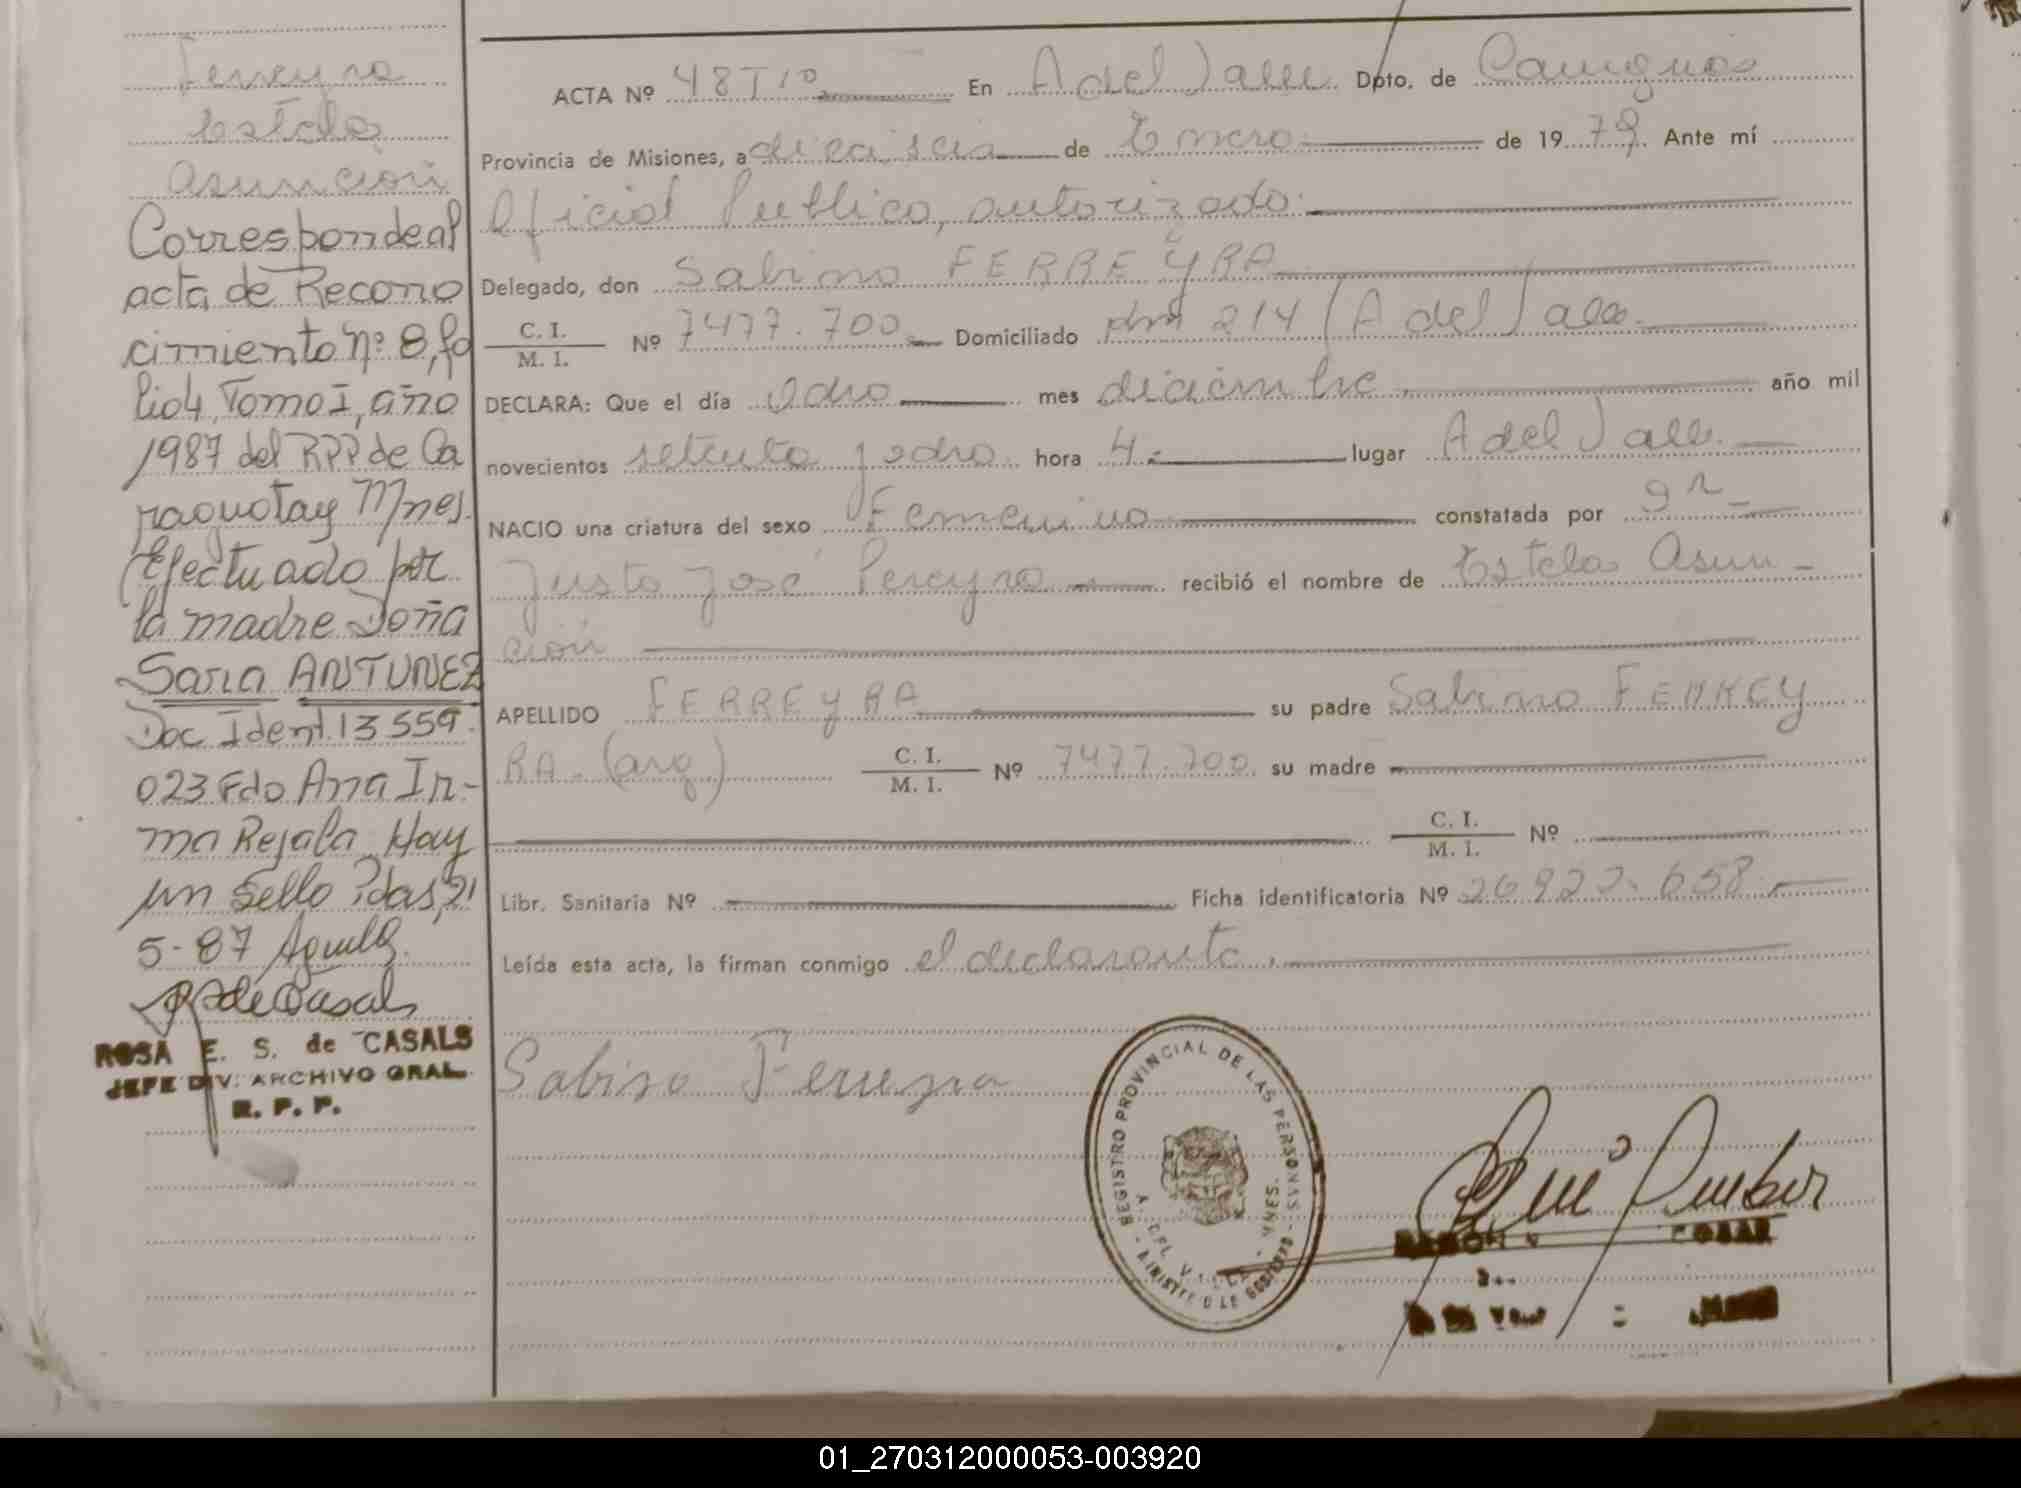 Ferreyra
Estela
Asunción
Corresponde al
acta de Recono
cimiento nº 8, fo
lio 4, Tomo I, año
1987 del RPP de Ca
raguatay Mnes.
Efectuado por
la madre Doña
Saria ANTUNEZ
Doc Ident. 13 559.
023 Fdo Ana Ir-
ma Rejala Hay
un Sello Pdas, 21
5-87 Aguila.
ROSA E. S. de CASALS
JEFE DIV. ARCHIVO GRAL.
R. P. P.
ACTA Nº 48 TIº En A del Valle Dpto. de Cainguás
Provincia de Misiones, a dieciseis de Enero de 1979. Ante mí
Oficial Público, autorizado.
Delegado, don Sabino FERREYRA
C. I.
M. I. Nº 7477.700 Domiciliado km 214 (A del Valle.
DECLARA: Que el día Ocho mes diciembre año mil
novecientos setenta y ocho hora 4. lugar A del Valle.
NACIO una criatura del sexo Femenino constatada por Sr
Justo José Pereyra recibió el nombre de Estela Asun-
ción
APELLIDO FERREYRA su padre Sabino FERREY
RA. (arg) C. I.
M. I. Nº 7477.700 su madre
C. I.
M. I. Nº
Libr. Sanitaria Nº Ficha identificatoria Nº 26922.658
Leída esta acta, la firman conmigo el declarante.
Sabino Ferreyra
REGISTRO PROVINCIAL DE LAS PERSONAS
A. DEL VALLE - MNES.
MINISTERIO DE GOBIERNO
01_270312000053-003920